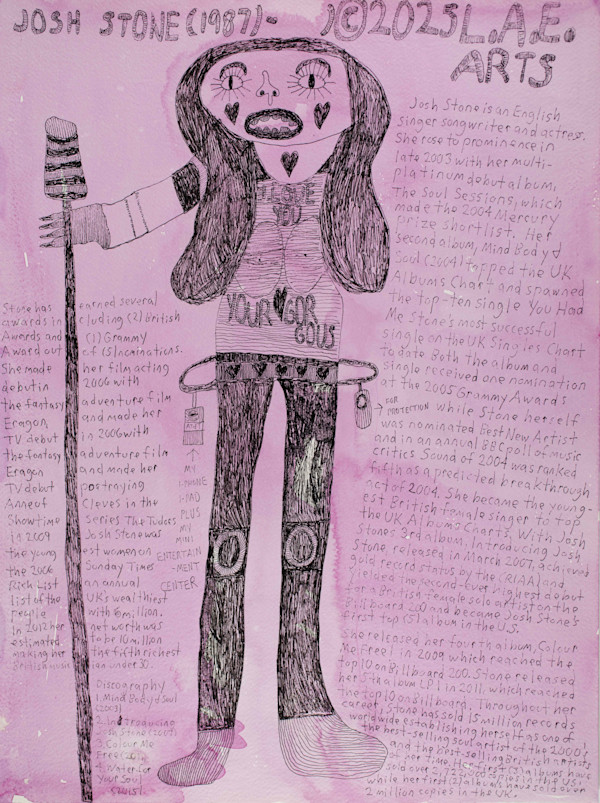 JOSH STONE (1987)- )©2025 L.A.E.
ARTS
I LOVE
YOU
YOUR GOR
GOUS
Josh Stone is an English
singer songwriter and actress.
She rose to prominence in
late 2003 with her multi-
platinum debut album,
The Soul Sessions, which
made the 2004 Mercury
prize shortlist. Her
second album, Mind Body &
Soul (2004) topped the UK
Albums Chart and spawned
The top-ten single You Had
Me Stone's most successful
single on the UK Singles Chart
To date Both the album and
Single received one nomination
at the 2005 Grammy Awards
while Stone herself
was nominated Best New Artist
and in an annual BBC poll of music
critics Sound of 2004 was ranked
fifth as a predicted breakthrough
act of 2004. She became the young-
est British female singer to top
the UK Albums Charts. With Josh
Stones 3rd album, Introducing Josh
Stone, released in March 2007, achieved
gold record status by the (RIAA) and
Yielded the second-ever highest debut
for a British female solo artist on the
Billboard 200 and became Josh Stone's
first top (5) album in the U.S.
She released her fourth album, Colour
Me Free! in 2009, which reached the
top 10 on Billboard 200. Stone released
her 5th album LP1 in 2011, which reached
the top 10 on Billboard. Throughout her
career, Stone has sold 15 million records
worldwide establishing herself as one of
the best-selling soul artist of the 2000's
and the best-selling British artists
of her time. Her first (3) albums have
sold over
while her first albums have sold over
2 million copies in the UK.
FOR
PROTECTION
MY
I-PHONE
I-PAD
PLUS
MY
MINI
ENTERTAIN
-MENT
CENTER
Stone has earned several
awards in cluding (2) british
Awards and (1) Grammy
Award out of (5) nominations.
She made her film acting
debut in 2006 with
the fantasy adventure film
Eragon, and made her
TV debut in 2006 with
the fantasy adventure film
Eragon and made her
TV debut portraying
Anne of Cleves in the
Showtime Series The Tudors
In 2009 Josh Stone was
the young est women on
the 2006 Sunday Times
Rich List an annual
list of the UK's wealthiest
people with £6 million.
In 2012 her net worth was
estimated to be 10 million
making her the fifth richest
British musi ian under 30.
Discography
1. Mind Body & Soul
(2003)
2. Introducing
Josh Stone (2007)
3. Colour Me
Free
4. Water for
Your Soul
(2015)